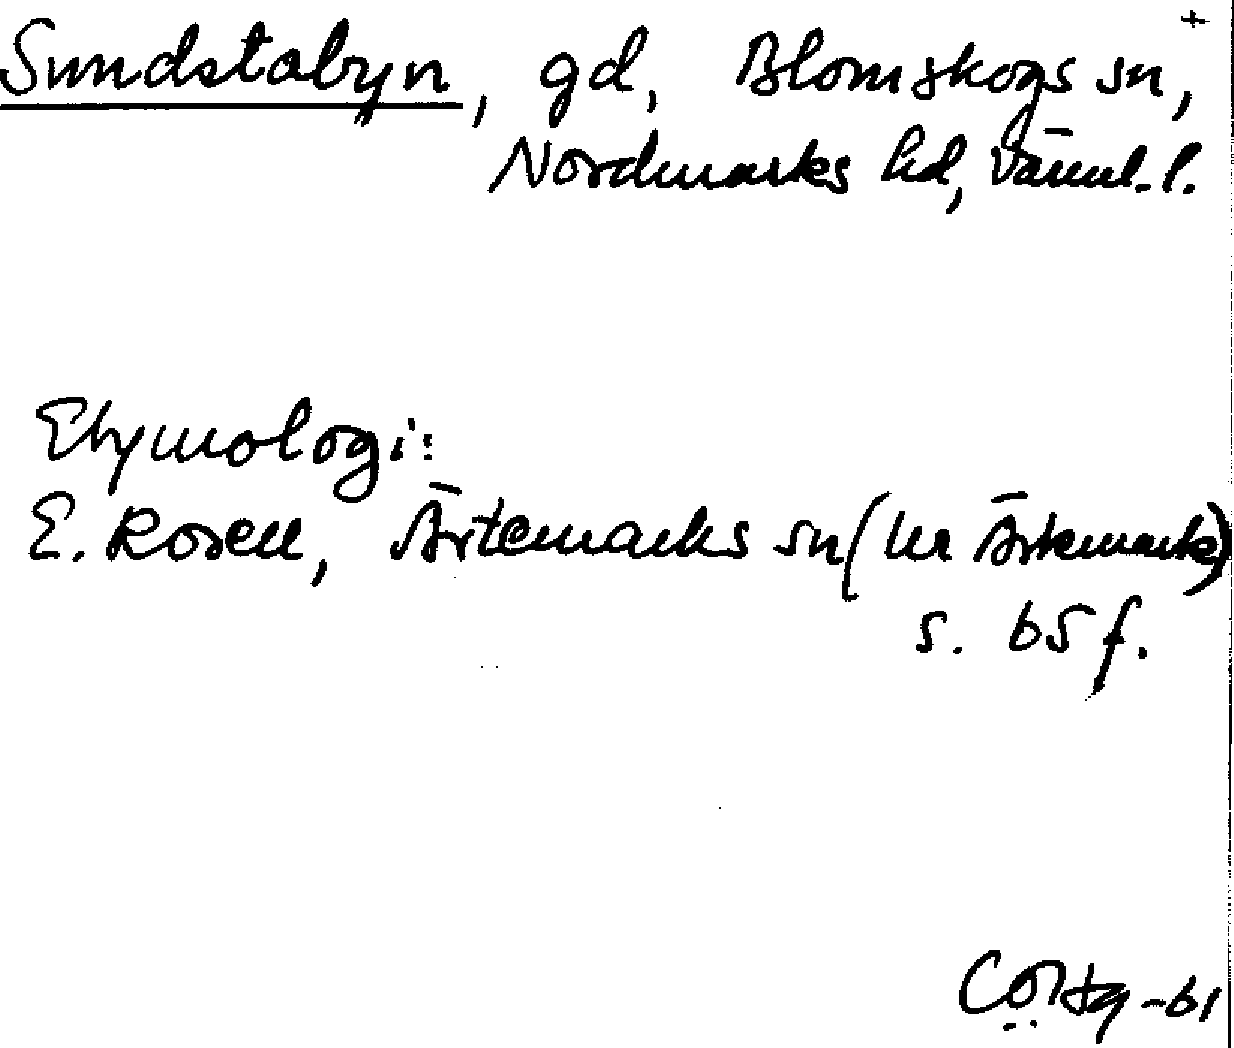 +
Sundstabyn, gd, Blomskogs sn,
Nordmarks hd, Värml. l.
Etymologi:
E. Rosell, Ärtemarks sn (ur Ärtemark)
s. 65 f.
-61